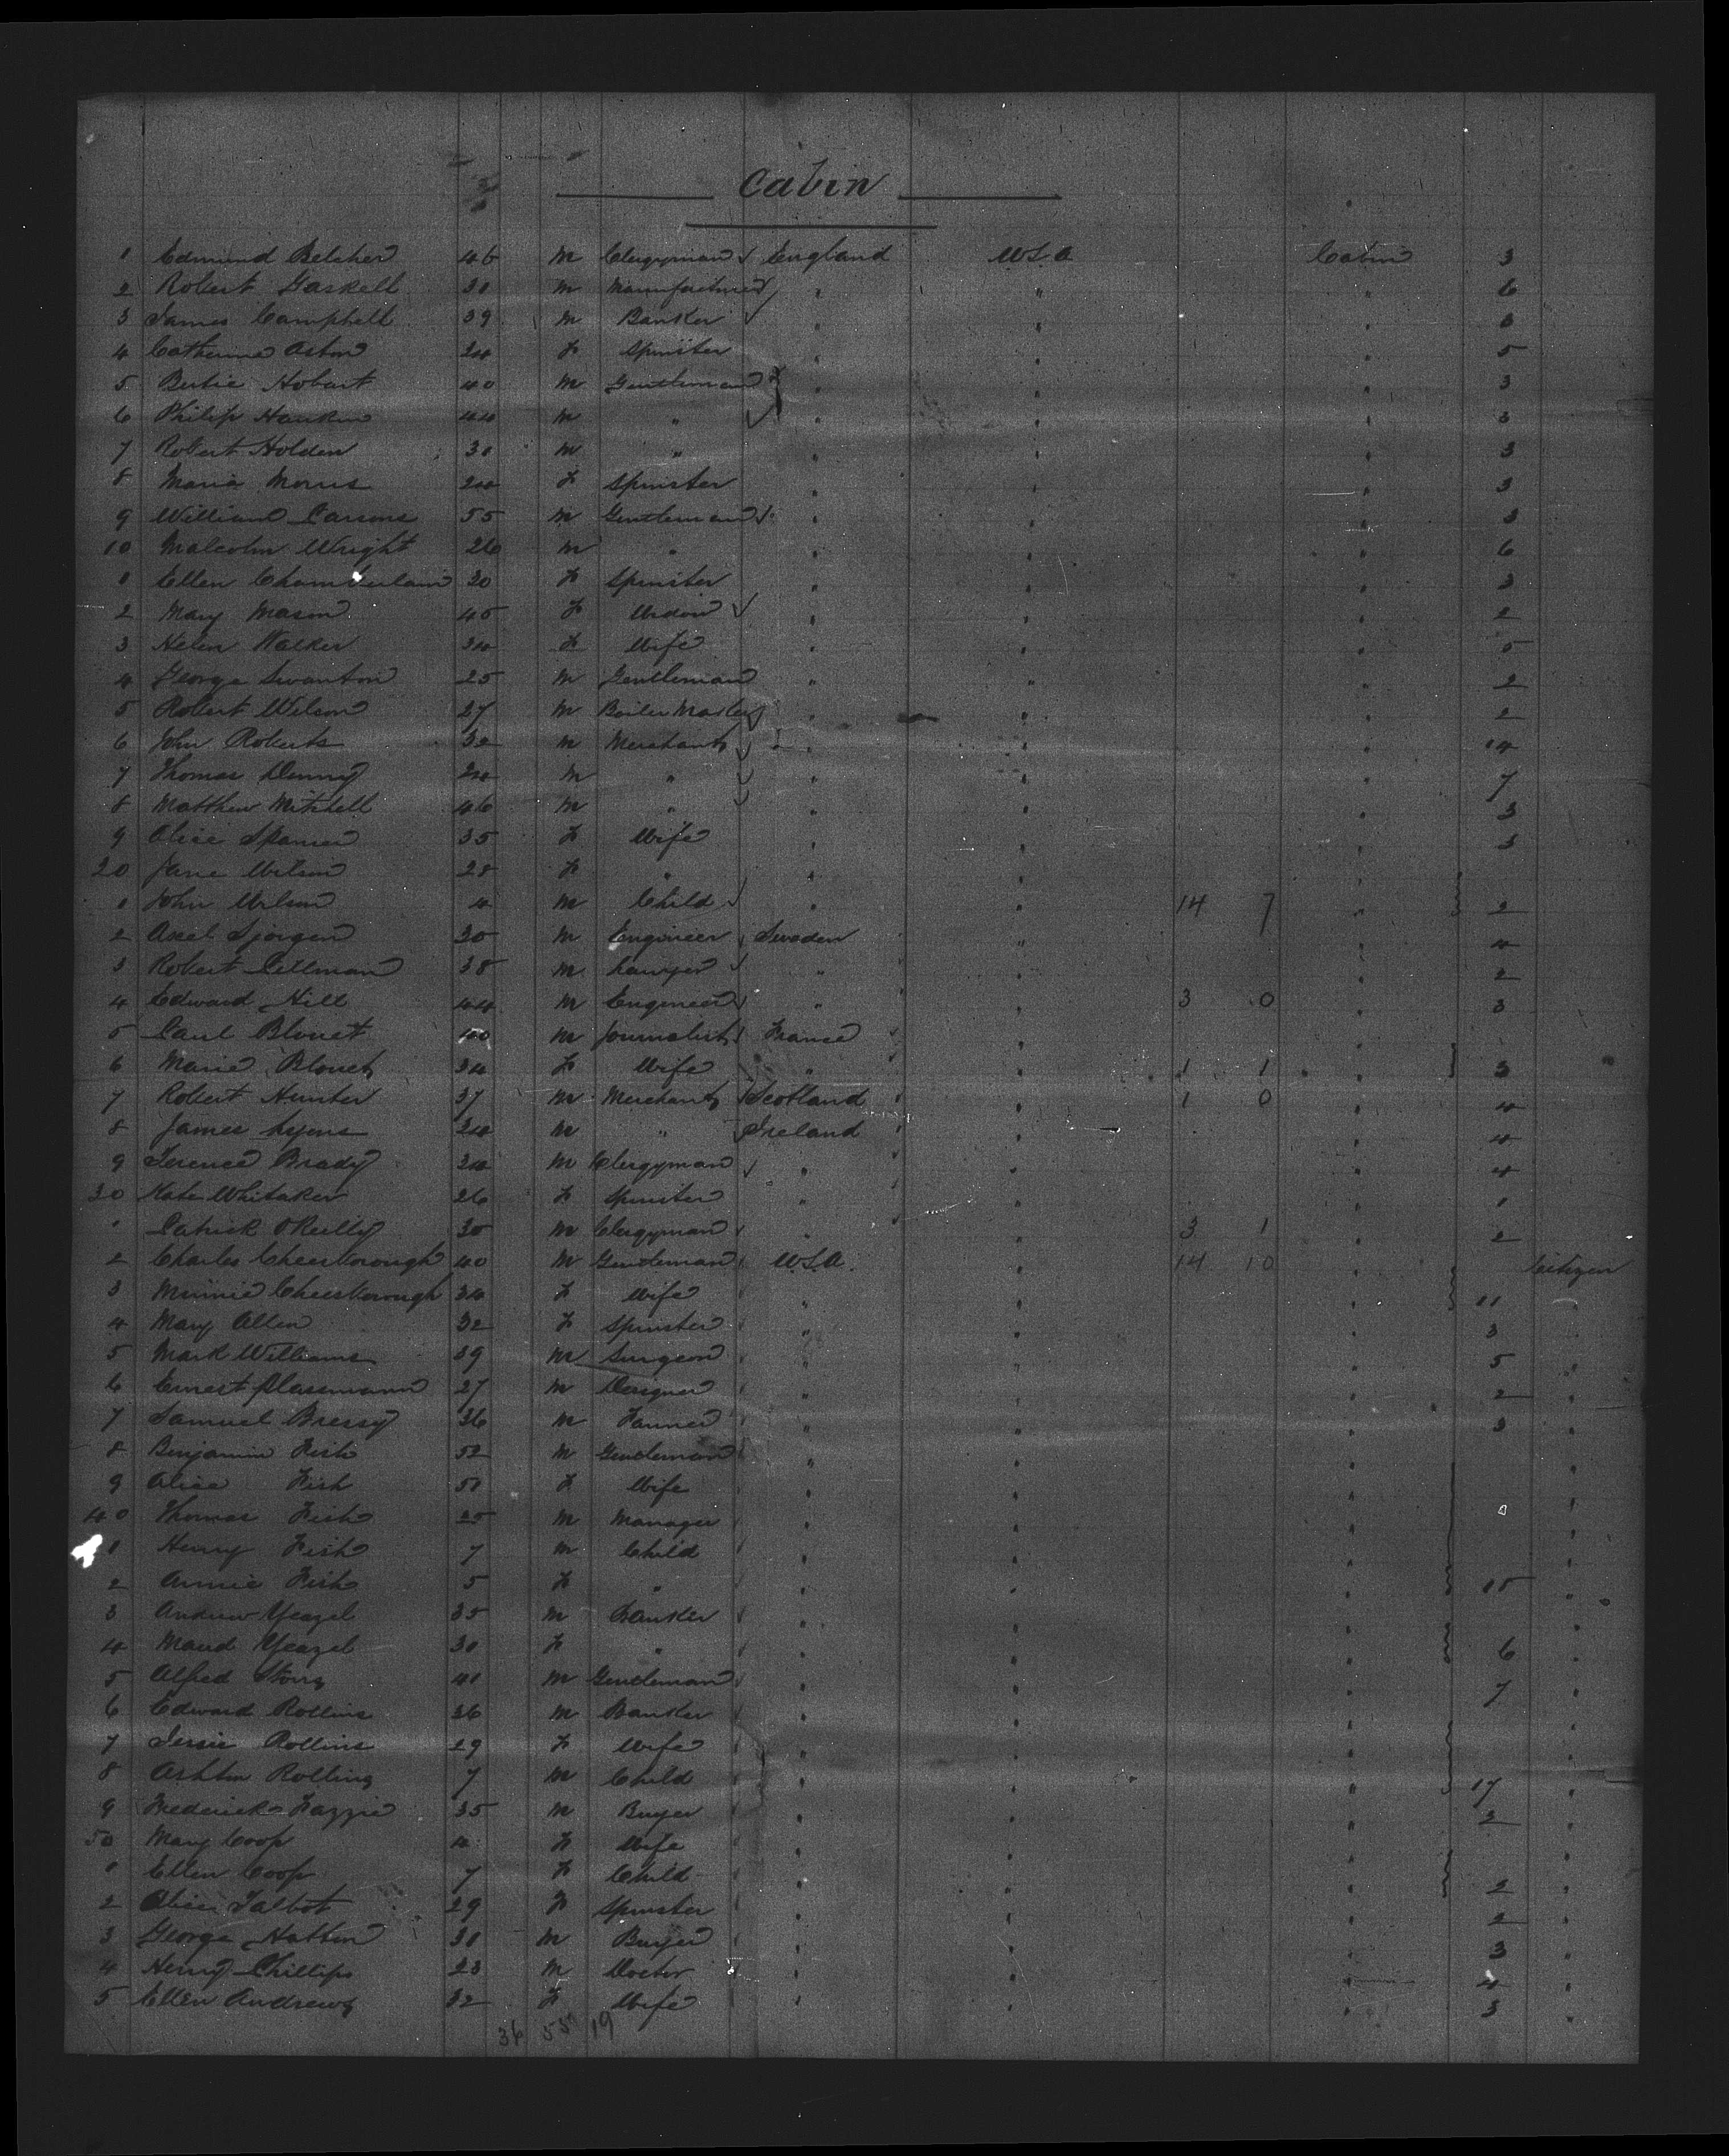 Cabin
1 Edmund Belcher 46 M Clergyman England U.S.A Cabin 3
2 Robert Gaskell 31 M Manufacturer " " " 6
3 James Campbell 39 M Banker " " "
4 Catherine Aston 24 F Spinster " " " 5
5 Bertie Hobart 40 M Gentleman " " " 3
6 Philip Hankin 44 M " " " " 3
7 Robert Holden 31 M " " " " 3
8 Maria Morris 24 F Spinster " " " 3
9 William Parsons 55 M Gentleman " " " 3
10 Malcolm Wright 26 M " " " " 6
1 Ellen Chamberlain 20 F Spinster " " " 3
2 Mary Mason 45 F Widow " " " 2
3 Helen Walker 34 F Wife " " " 5
4 George Swanton 25 M Gentleman " " " 2
5 Robert Wilson 27 M Boiler Maker " " " 2
6 John Roberts 32 M Merchant " " " 14
7 Thomas Denny 24 M " " " " 7
8 Matthew Mitchell 46 M " " " " 3
9 Alice 35 F Wife " " " 3
20 Jane Wilson 28 F " " " "
1 John Wilson 4 M Child " " 14 7 " 2
2 Axel Sjorgen 30 M Engineer Sweden " " 4
3 Robert 38 M Lawyer " " " 2
4 Edward Hill 44 M Engineer " " 3 0 " 3
5 Paul Blouet 40 M Journalist France " "
6 Marie Blouet 34 F Wife " " 1 1 " 3
7 Robert Hunter 37 M Merchant Scotland " 1 0 " 4
8 James Lyons 24 M " Ireland " " 4
9 Terence Brady 34 M Clergyman " " " 4
30 Kate Whitaker 26 F Spinster " " " 1
1 Patrick O'Reilly 30 M Clergyman " " 3 1 " 2
2 Charles Cheesborough 40 M Gentleman U.S.A. " 14 10 " Citizen
3 Minnie Cheesborough 34 F Wife " " " 11
4 Mary Allen 32 F Spinster " " " 3
5 Mark Williams 39 M Surgeon " " " 5 "
6 Ernest Plassmann 27 M Designer " " " 2 "
7 Samuel Bressy 36 M " " " 3 "
8 Benjamin Fish 52 M Gentleman " " " "
9 Alice Fish 51 F Wife " " " "
40 Thomas Fish 25 M Manager " " " "
1 Henry Fish 7 M Child " " " "
2 Annie Fish 5 F " " " " 15 "
3 Andrew Yeazel 35 M Banker " " " "
4 Maud Yeazel 30 F " " " " 6 "
5 Alfred 41 M Gentleman " " " 7 "
6 Edward Rollins 36 M Banker " " " "
7 Jessie Rollins 29 F Wife " " " "
8 Ashton Rollins 7 M Child " " " 17 "
9 Frederick Fazzie 35 M Buyer " " " 2 "
50 Mary Coop F Wife " " " "
1 Ellen Coop 7 F Child " " " 2 "
2 Alice Talbot 29 F Spinster " " " 2 "
3 George Hatton 31 M Buyer " " " 3 "
4 Henry Phillips 23 M Doctor " " " 4 "
5 Ellen Andrews 32 F Wife " " " 3 "
36 55 19